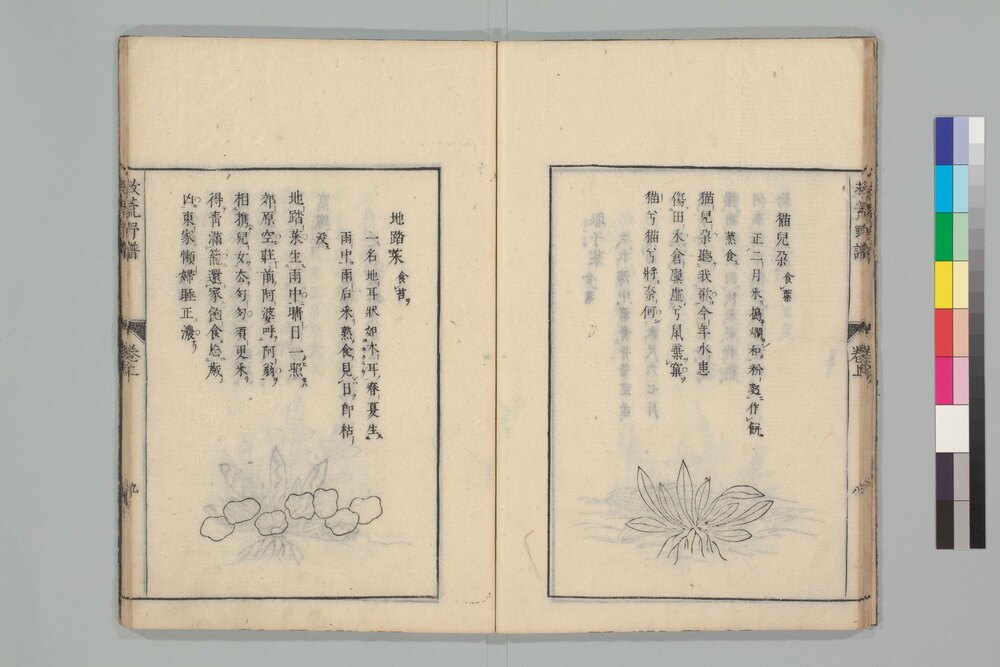 猫兒朶 食葉
正二月采搗爛和粉麫作餅
蒸食
猫兒朶聽我歌今年水患
傷田禾倉廩虛兮鼠棄窠
猫兮猫兮將奈何
八
地踏菜 食苗
一名地耳狀如木耳春夏生
雨中雨后采熟食見日即枯
没
地踏菜生雨中晴日一照
郊原空莊前阿婆呼阿翁
相携兒女去匆匆須更采
得青滿籠還家飽食忘歲
凶東家懶婦睡正濃
救荒野譜
九